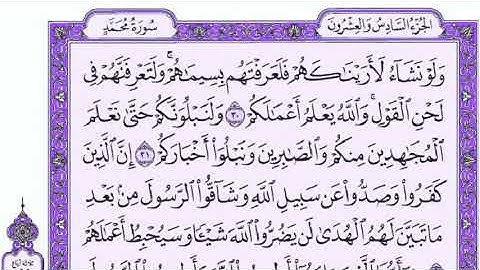 الجزء السادس والعشرون
سورة محمد
وَلَوْ نَشَآءُ لَأَرَيْنَٰكَهُمْ فَلَعَرَفْتَهُم بِسِيمَٰهُمْ ۚ وَلَتَعْرِفَنَّهُمْ فِى
لَحْنِ ٱلْقَوْلِ ۚ وَٱللَّهُ يَعْلَمُ أَعْمَٰلَكُمْ ٣٠ وَلَنَبْلُوَنَّكُمْ حَتَّىٰ نَعْلَمَ
ٱلْمُجَٰهِدِينَ مِنكُمْ وَٱلصَّٰبِرِينَ وَنَبْلُوَا۟ أَخْبَارَكُمْ ٣١ إِنَّ ٱلَّذِينَ
كَفَرُوا۟ وَصَدُّوا۟ عَن سَبِيلِ ٱللَّهِ وَشَآقُّوا۟ ٱلرَّسُولَ مِنۢ بَعْدِ
مَا تَبَيَّنَ لَهُمُ ٱلْهُدَىٰ لَن يَضُرُّوا۟ ٱللَّهَ شَيْـًٔا وَسَيُحْبِطُ أَعْمَٰلَهُمْ